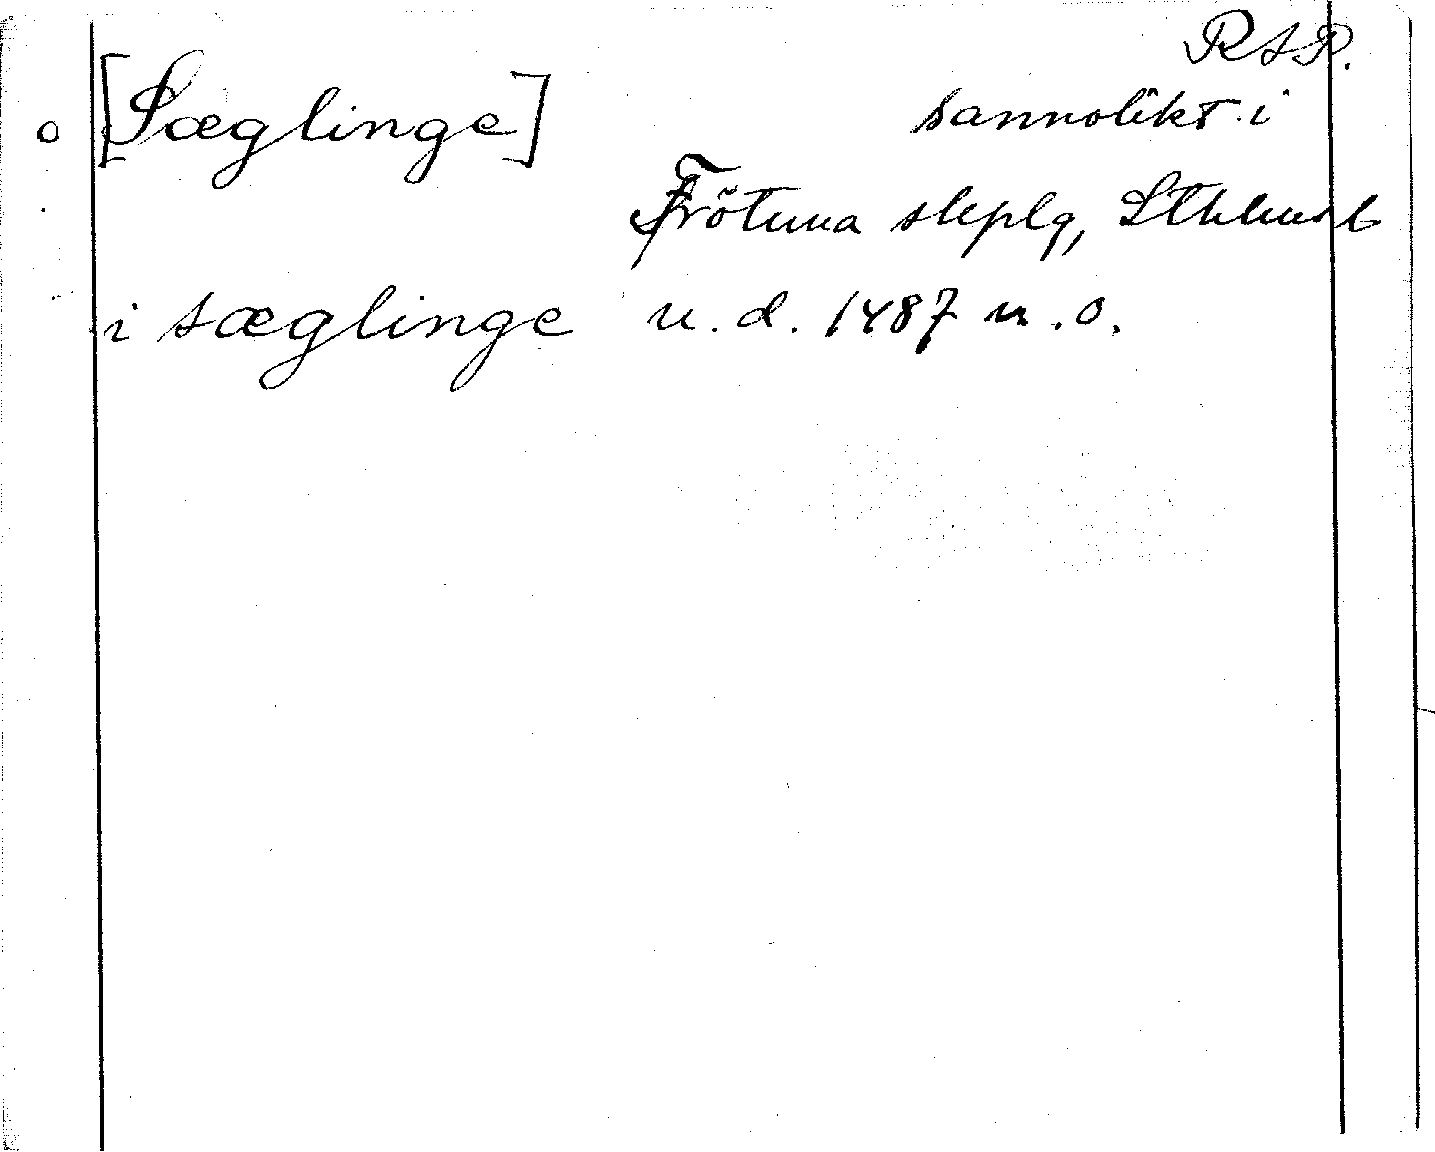 RAP.
o [Sæglinge] sannolikt i
Frötuna skplg, Sthlms l
i sæglinge u. d. 1487 u. o.